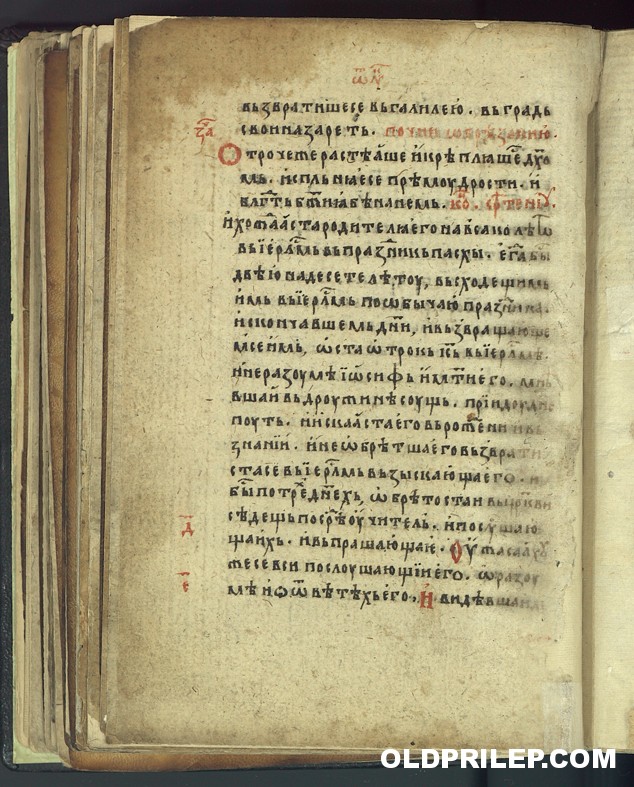 вьзвратишесе вьгалилею. вьградь
свои назареть.
Отрочеже растѣаше и крѣплꙗшеꙁе дхѡ
мь. испльнꙗесе прѣмоудрости. и
блгть бжиа бѣ на немь.
и хождааста родителꙗ его на всако лѣтѡ
вь їерлмь вь праздникь пасхы. егда бы
двѣю надесете лѣтоу, вьсходещимь
имь вь їерлмь по ѡбычаю праздника.
и скончавшемь дни, и вьзвращающе
мсе имь, ѡста ѡтрокь ис вь їерлмѣ.
и не разоумѣ їѡсифь и мти его.
вша и вь дроужинѣ соущь. прїидоу
поуть. и искааста его вь рождени
знании. и не ѡбрѣтша его вьзврати
стасе вь їерлмь вьзыскающа его.
бы по трехь днехь, ѡбрѣтоста и
сѣдещь посрѣ оучитель. и послушаю
щаихь. и вьпрашающа е. Оужасаахоу
жесе вси послоушающїи его. ѡ разоу
мѣ и ѡ ѡвѣтѣхь его. И видѣвша и
д
е
OLDPRILEP.COM